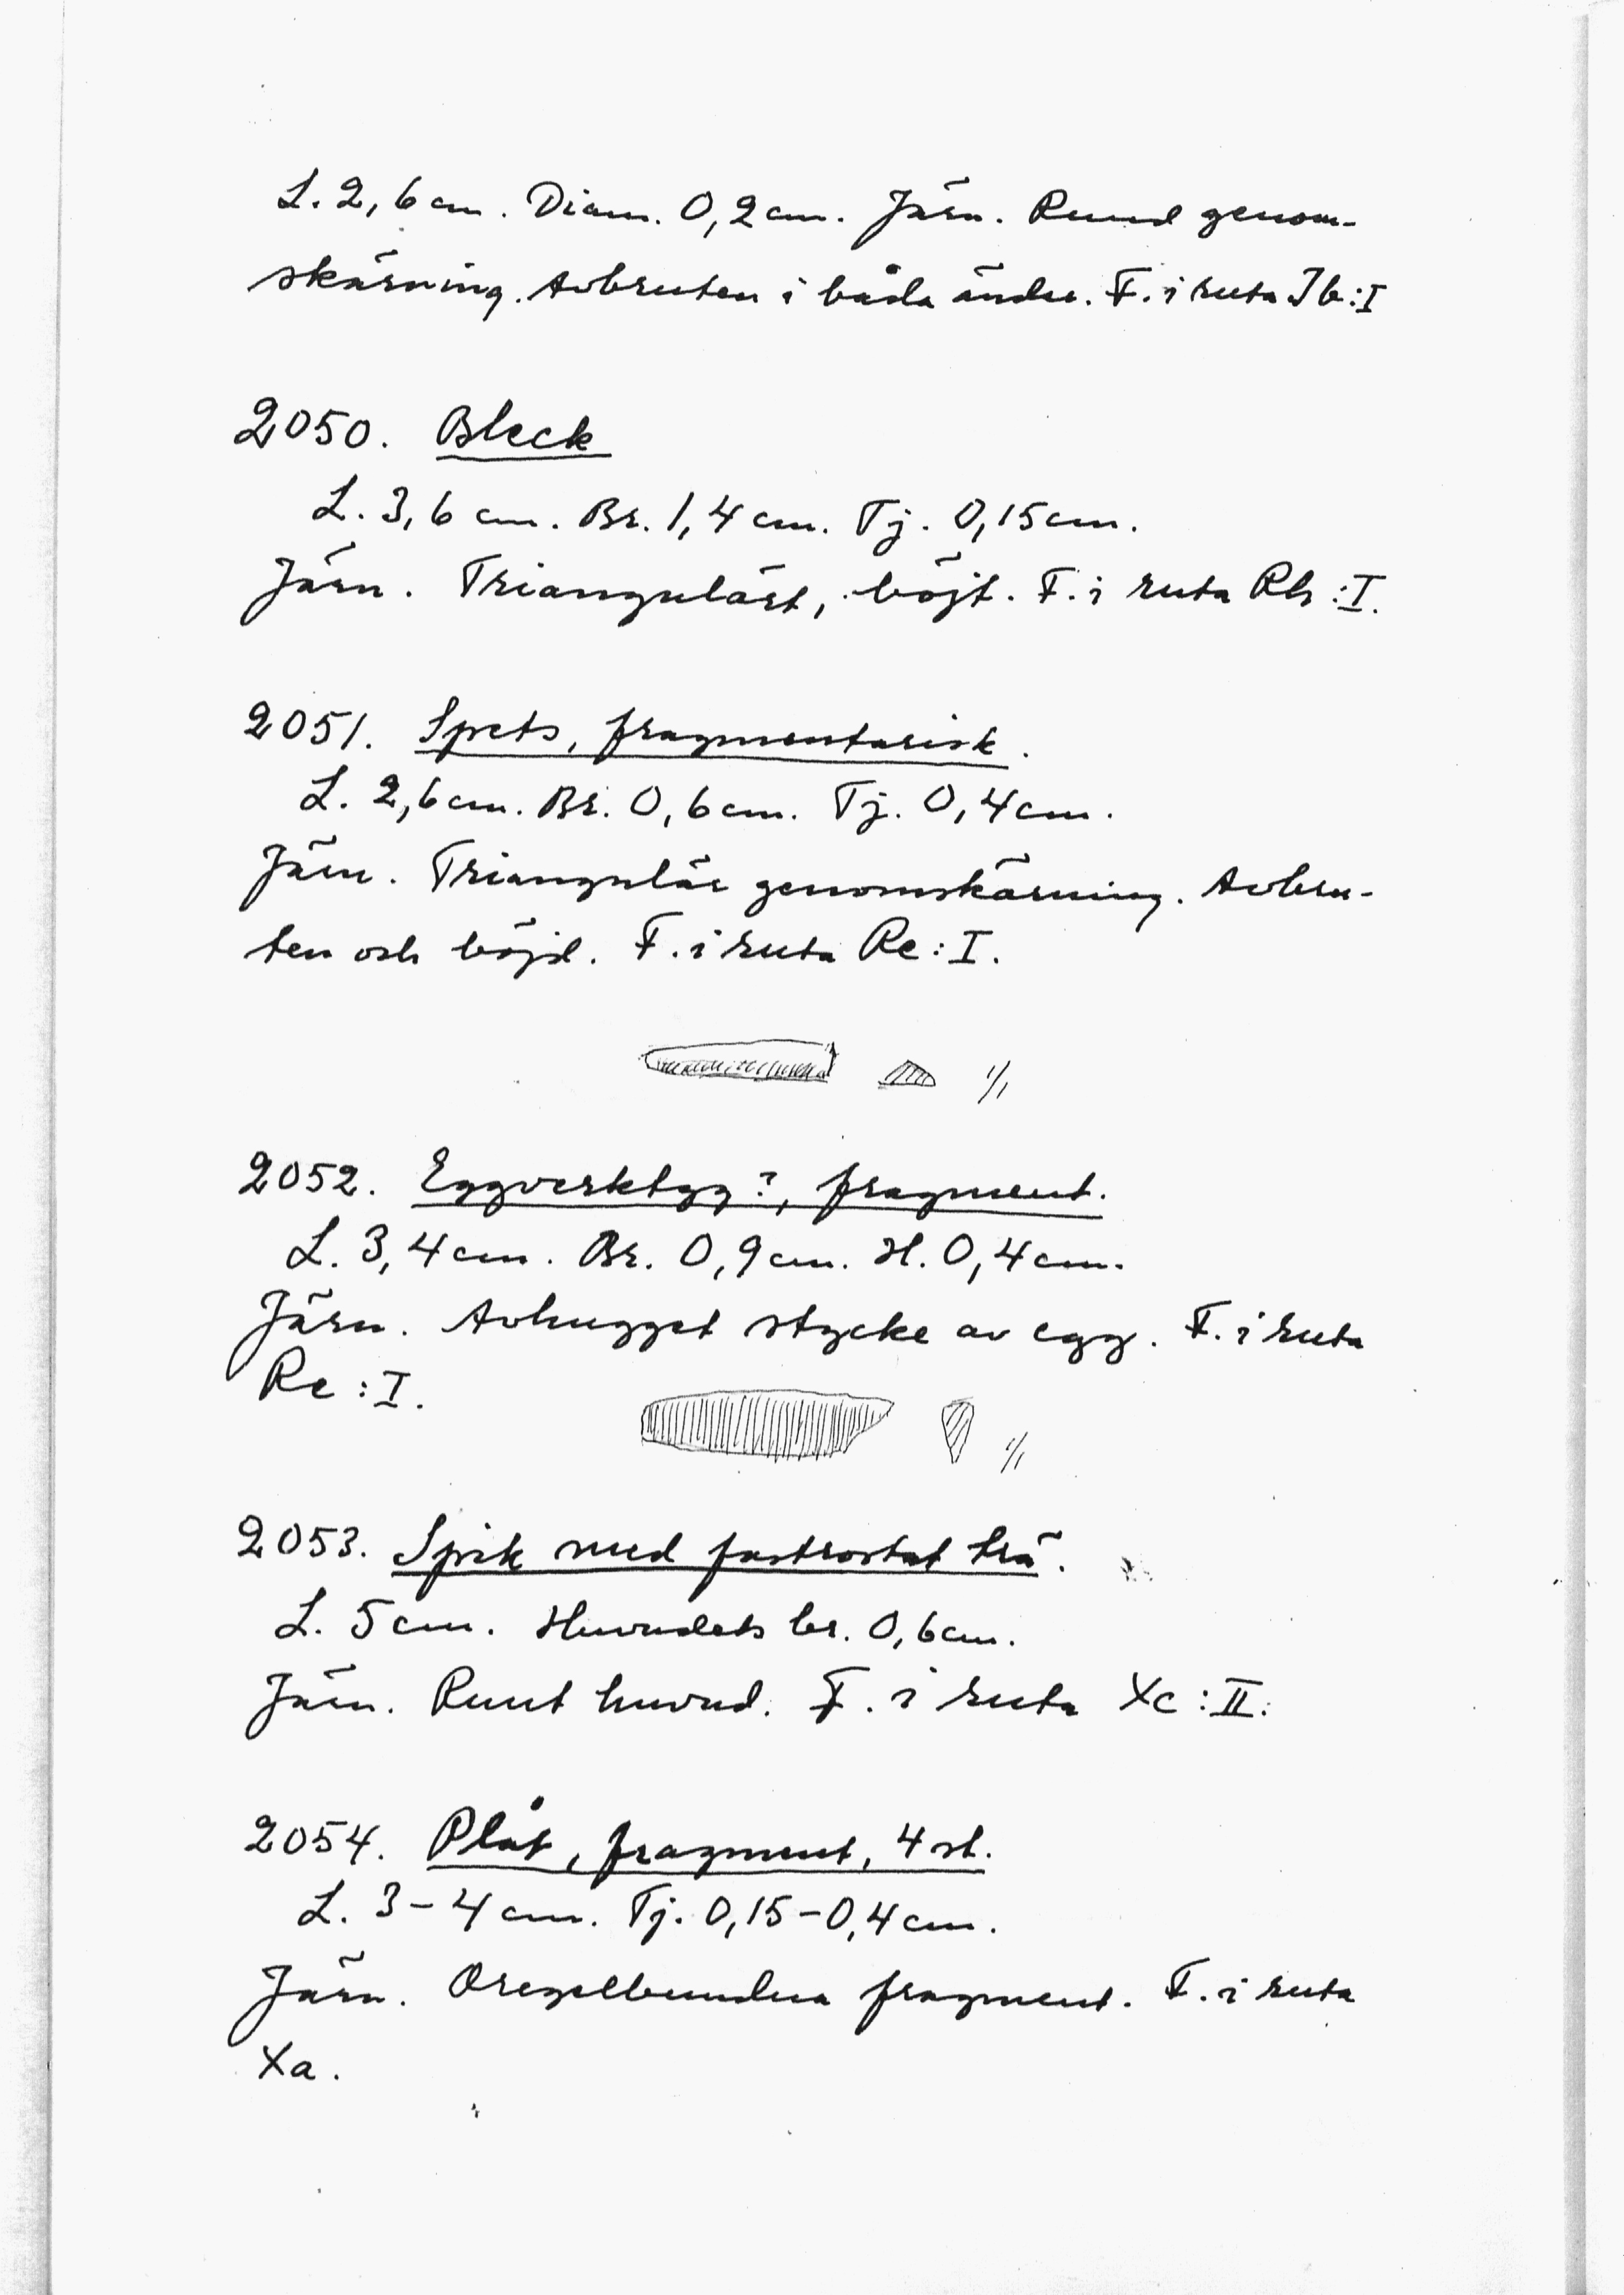 L. 2,6 cm. Diam. 0,2 cm. Järn. Rund genom-
skärning. Avbruten i båda ändar. F. i ruta Ib:I
2050. Bleck
L. 3,6 cm. Br. 1,4 cm. Tj. 0,15 cm.
Järn. Triangulärt, böjt. F. i ruta Rb:I.
2051. Spets, fragmentarisk.
L. 2,6 cm. Br. 0,6 cm. Tj. 0,4 cm.
Järn. Triangulär genomskärning. Avbru-
ten och böjd. F. i ruta Re:I.
1/1
2052. Eggverktyg?, fragment.
L. 3,4 cm. Br. 0,9 cm. H. 0,4 cm.
Järn. Avhugget stycke av egg. F. i ruta
Re:I.
1/1
2053. Spik med fastrostat trä.
L. 5 cm. Huvudets br. 0,6 cm.
Järn. Runt huvud. F. i ruta Xc:II.
2054. Plåt, fragment, 4 st.
L. 3-4 cm. Tj. 0,15-0,4 cm.
Järn. Oregelbundna fragment. F. i ruta
Xa.